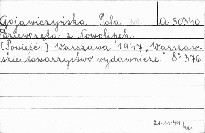 Gojawiczyńska Pola A 50340
Dziewczęta z Nowolipek.
[Powieść] Warszawa 1947, Warszaw-
skie towarzystwo wydawnicze. 8° 376